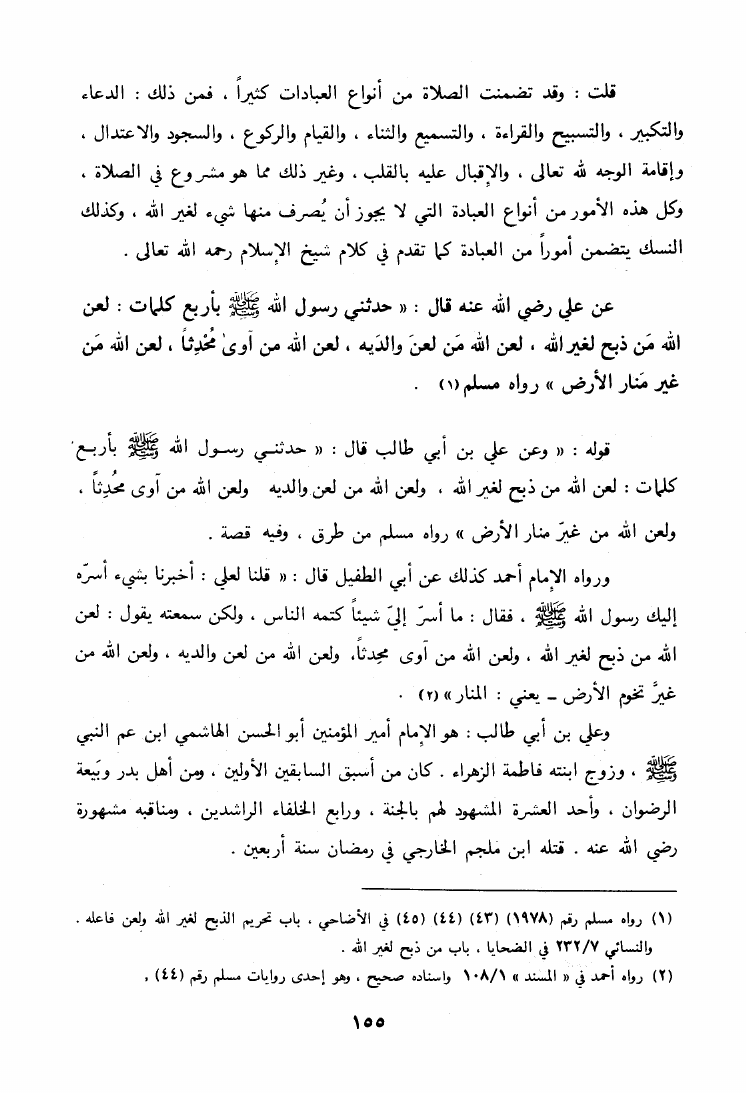 قلت : وقد تضمنت الصلاة من أنواع العبادات كثيراً ، فمن ذلك : الدعاء
والتكبير ، والتسبيح والقراءة ، والتسميع والثناء ، والقيام والركوع ، والسجود والاعتدال ،
وإقامة الوجه لله تعالى ، والإقبال عليه بالقلب ، وغير ذلك مما هو مشروع في الصلاة ،
وكل هذه الأمور من أنواع العبادة التي لا يجوز أن يُصرف منها شيء لغير الله ، وكذلك
النسك يتضمن أموراً من العبادة كما تقدم في كلام شيخ الإسلام رحمه الله تعالى .
عن علي رضي الله عنه قال : « حدثني رسول الله ﷺ بأربع كلمات : لعن
الله مَن ذبح لغير الله ، لعن الله مَن لعنَ والدَيه ، لعن الله من آوىٰ مُحْدِثاً ، لعن الله مَن
غير مَنار الأرض » رواه مسلم (١) .
قوله : « وعن علي بن أبي طالب قال : « حدثنـي رسـول الله ﷺ بأربـع
كلمات : لعن الله من ذبح لغير الله ، ولعن الله من لعن والديه ولعن الله من آوى محُدِثاً ،
ولعن الله من غيرّ منار الأرض » رواه مسلم من طرق ، وفيه قصة .
ورواه الإمام أحمد كذلك عن أبي الطفيل قال : « قلنا لعلي : أخبرنا بشيء أسرّه
إليك رسول الله ﷺ ، فقال : ما أسرّ إليّ شيئاً كتمه الناس ، ولكن سمعته يقول : لعن
الله من ذبح لغير الله ، ولعن الله من آوى محِدثاً، ولعن الله من لعن والديه ، ولعن الله من
غيرَّ تخوم الأرض ــ يعني : المنار» (٢) .
وعلي بن أبي طالب : هو الإمام أمير المؤمنين أبو الحسن الهاشمي ابن عم النبي
ﷺ ، وزوج ابنته فاطمة الزهراء . كان من أسبق السابقين الأولين ، ومن أهل بدر وبَيعة
الرضوان ، وأحد العشرة المشهود لهم بالجنة ، ورابع الخلفاء الراشدين ، ومناقبه مشهورة
رضي الله عنه . قتله ابن ملجم الخارجي في رمضان سنة أربعين .
(١) رواه مسلم رقم (١٩٧٨) (٤٣) (٤٤) (٤٥) في الأضاحي ، باب تحريم الذبح لغير الله ولعن فاعله .
والنسائي ٢٣٢/٧ في الضحايا ، باب من ذبح لغير الله .
(٢) رواه أحمد في « المسند » ١٠٨/١ واسناده صحيح ، وهو إحدى روايات مسلم رقم (٤٤) ,
١٥٥